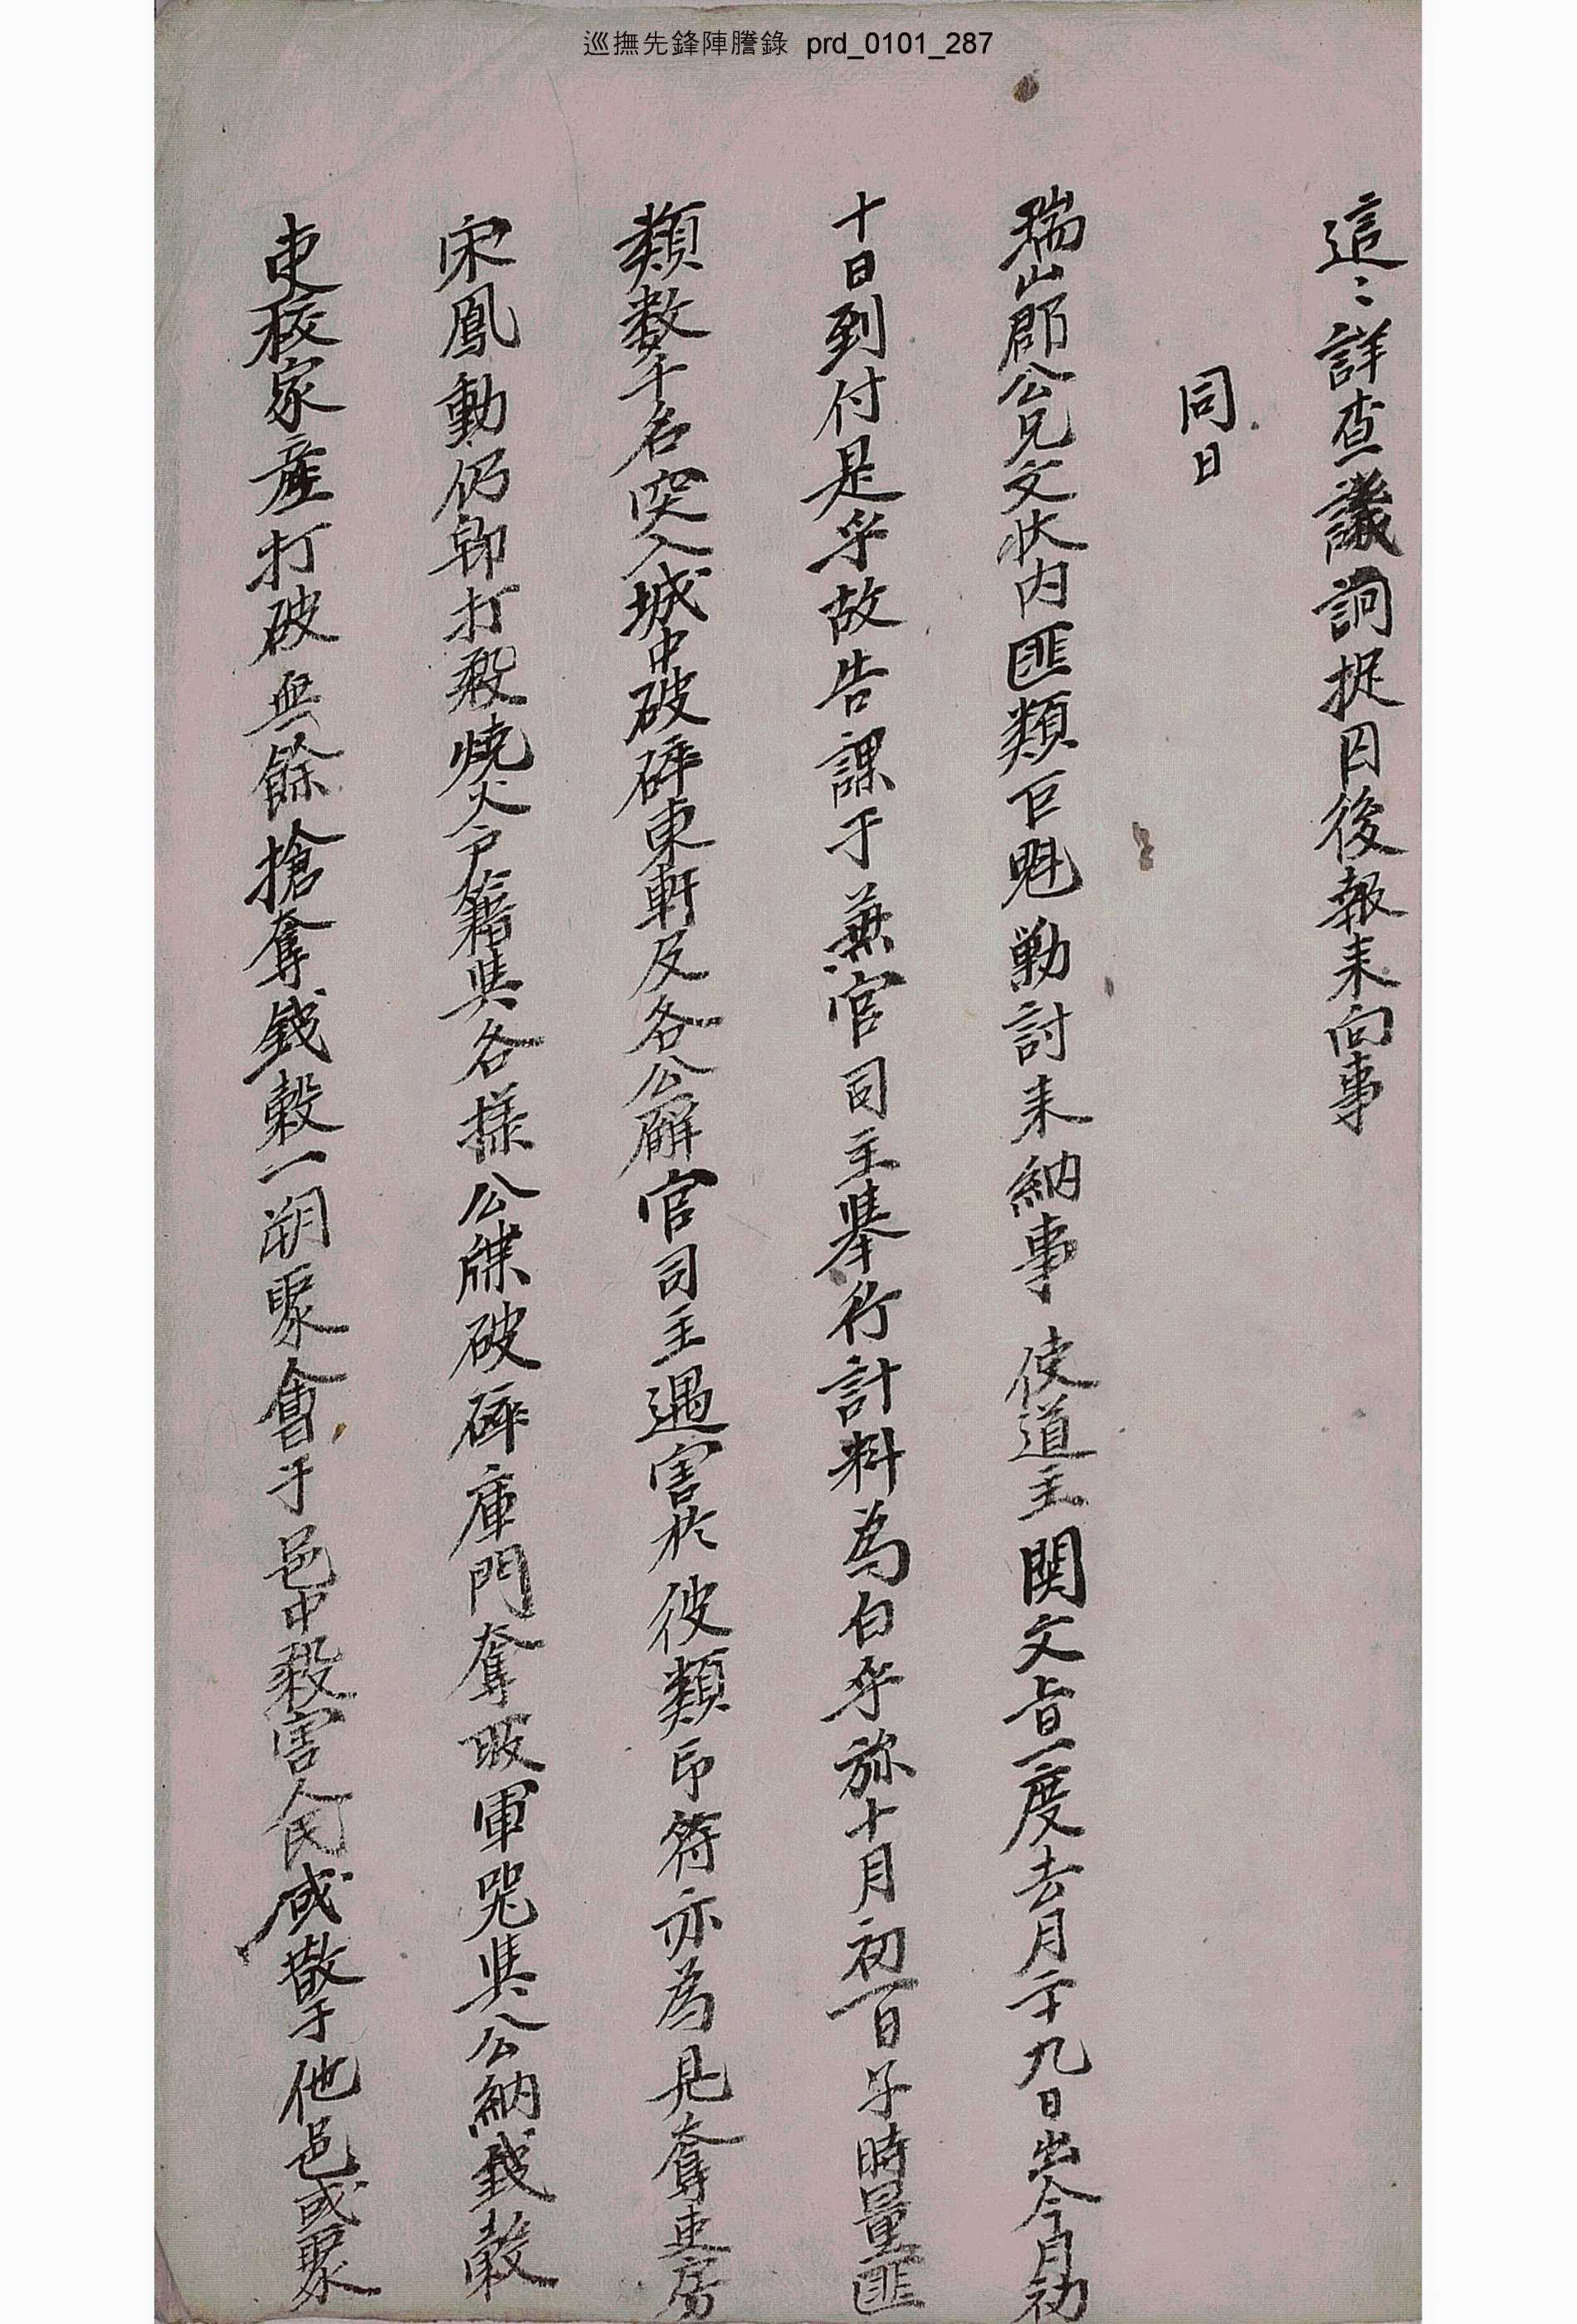 巡撫先鋒陣謄錄 prd_0101_287
這〻詳查譏詗捉囚後報来向事
同日
瑞山郡公兄文狀內匪類巨魁勦討来納事 使道主関文旨一度去月二十九日出今月初
十日到付是乎故告課于兼官司主擧行計料為白乎旀十月初一日子時量匪
類数千名突入城中破碎東軒及各公廨官司主遇害於彼類印符亦為見奪吏房
宋鳳勳仍卽打殺燒火戶籍與各樣公牒破碎庫門奪取軍器與公納錢穀
吏校家產打破無餘搶奪錢穀一朔聚會于邑中殺害人民或散于他邑或聚